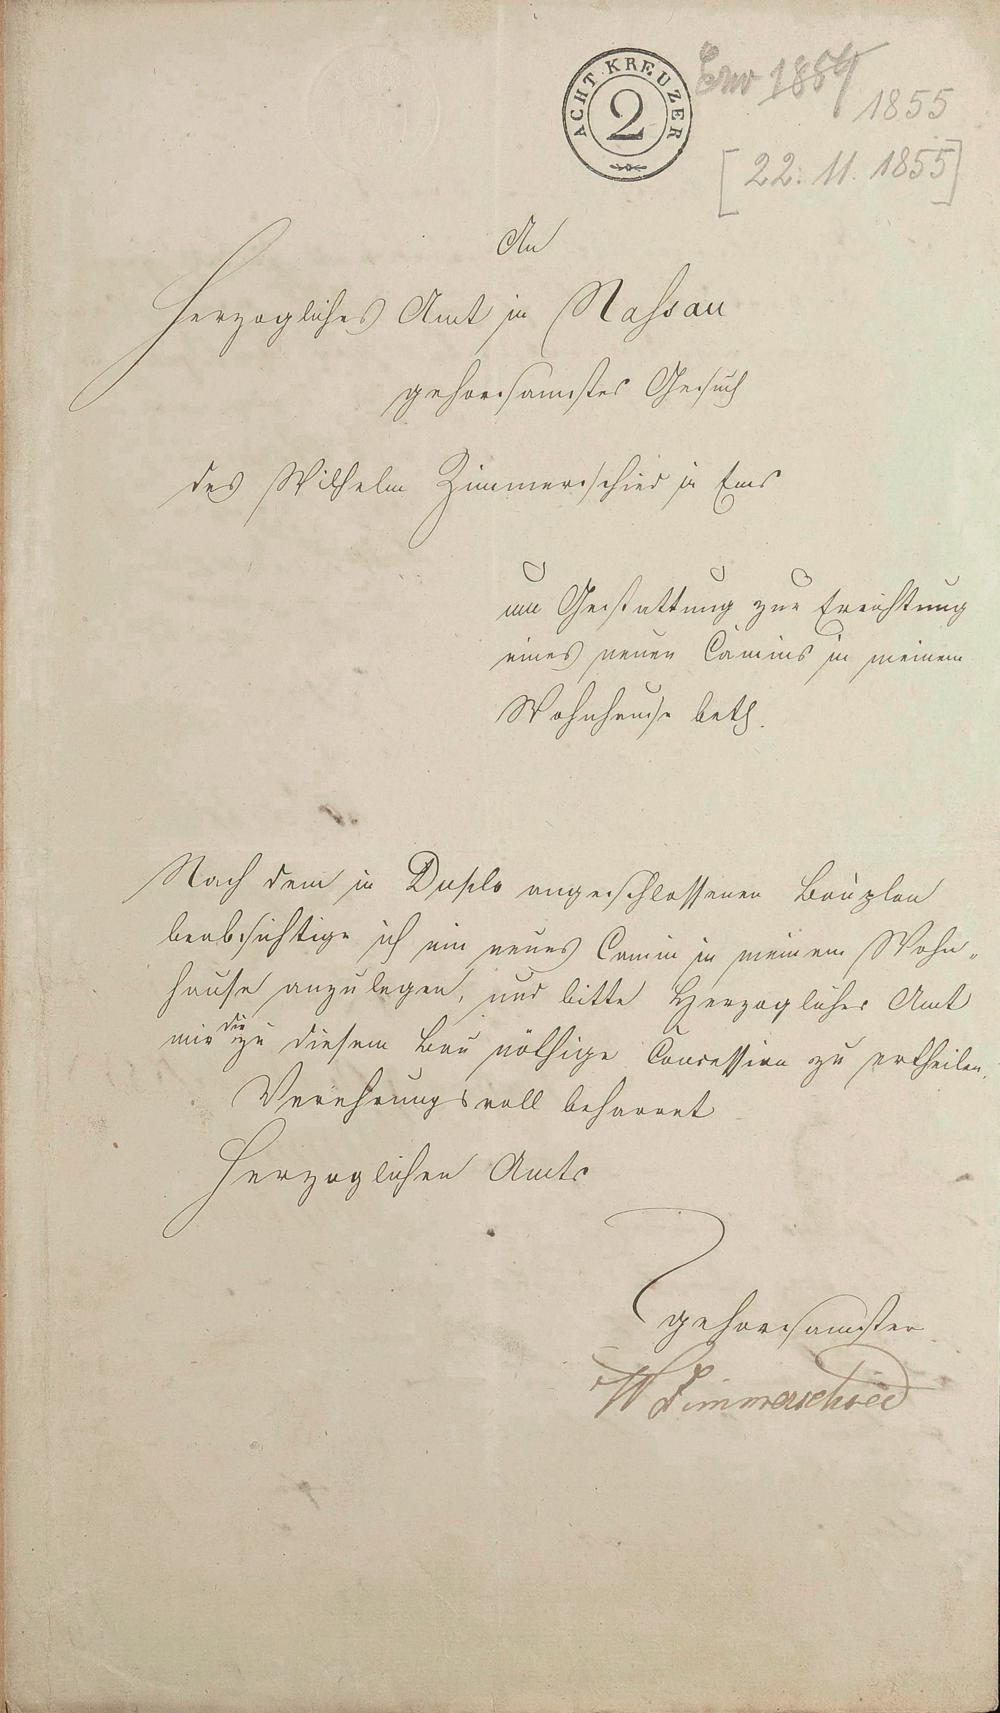 ACHT KREUZER
2
1854
1855
[22. 11. 1855]
An
Herzogliches Amt in Nassau
gehorsamstes Gesuch
des Wilhelm Zimmerschied in Ems
um Gestattung zur Errichtung
eines neuen Camins in meinem
Wohnhause betr.
Nach dem in Duplo angeschlossenen Bauplan
beabsichtige ich ein neues Camin in meinem Wohn„
hause anzulegen, und bitte Herzogliches Amt
mir die zu diesem Bau nöthige Concession zu ertheilen.
Verehrungsvoll beharret
Herzoglichen Amts
gehorsamster
W Zimmerschied